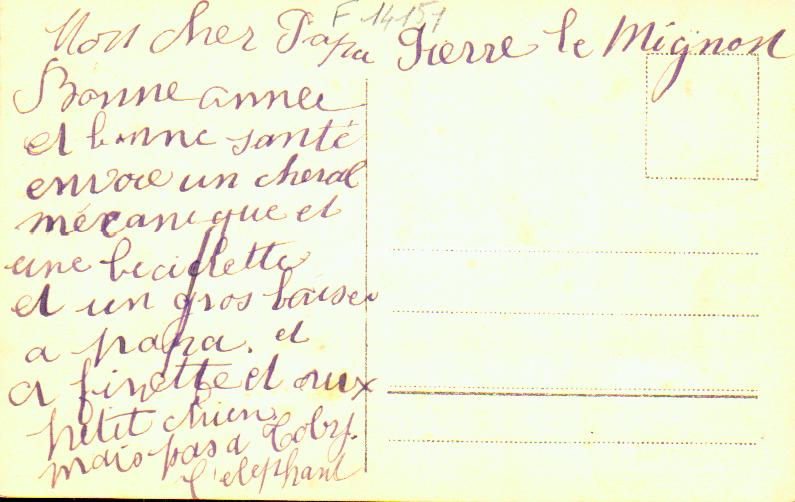 F 14151
Mon cher Papa Pierre le Mignon
Bonne année
et bonne santé
envoie un cheval
mécanique et
une beciclette
et un gros baiser
a papa. et
a finette et aux
petit chien
mais pas a Toby.
l'elephant